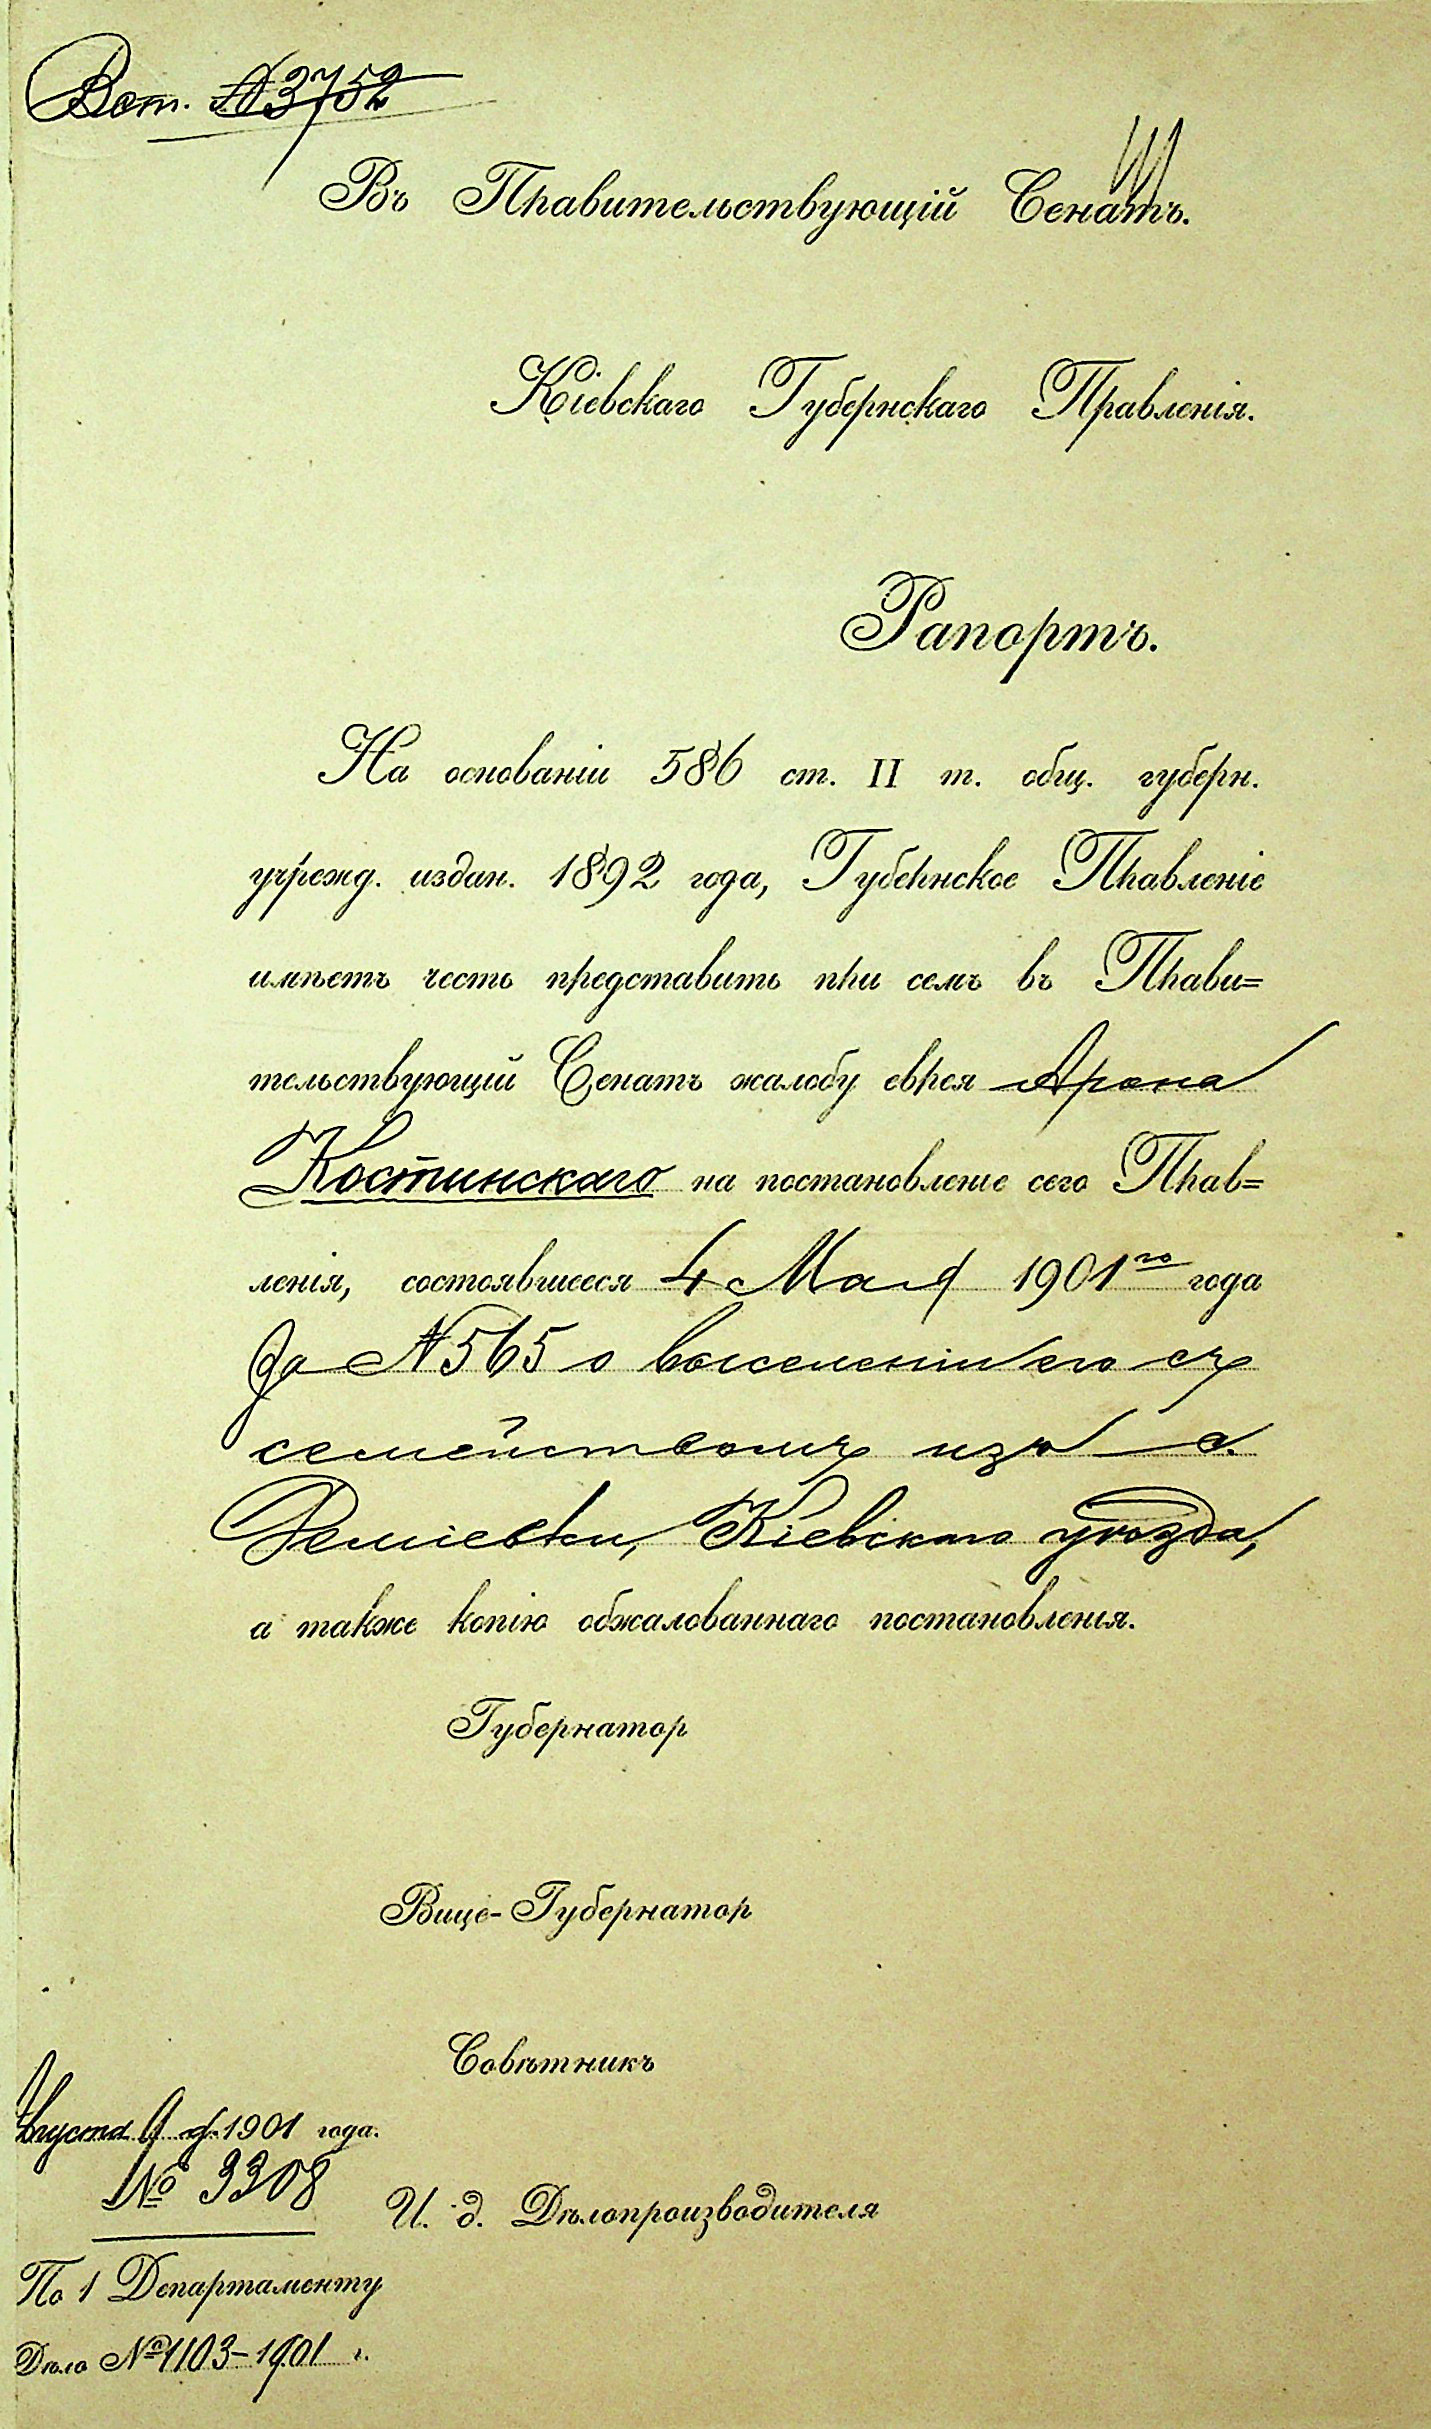 Вст. №3752
Въ Правительствующій Сенатъ.
Кіевскаго Губернскаго Правленія.
Рапортъ.
На основаніи 586 ст. II т. общ. губерн.
учрежд. издан. 1892 года, Губернское Правленіе
имѣетъ честь представить при семъ въ Прави=
тельствующій Сенатъ жалобу еврея Арона
Костинскаго на постановленіе сего Прав=
ленія, состоявшееся 4 Мая 1901го года
за №565 о выселеніи его съ
семействомъ изъ с.
Деміевки, Кіевскаго уѣзда,
а также копію обжалованнаго постановленія.
Губернаторъ
Вице-Губернаторъ
Совѣтникъ
Августа д. 1901 года.
№ 3308
И. д. Дѣлопроизводителя
По 1 Департаменту
Дѣло №1103-1901 г.